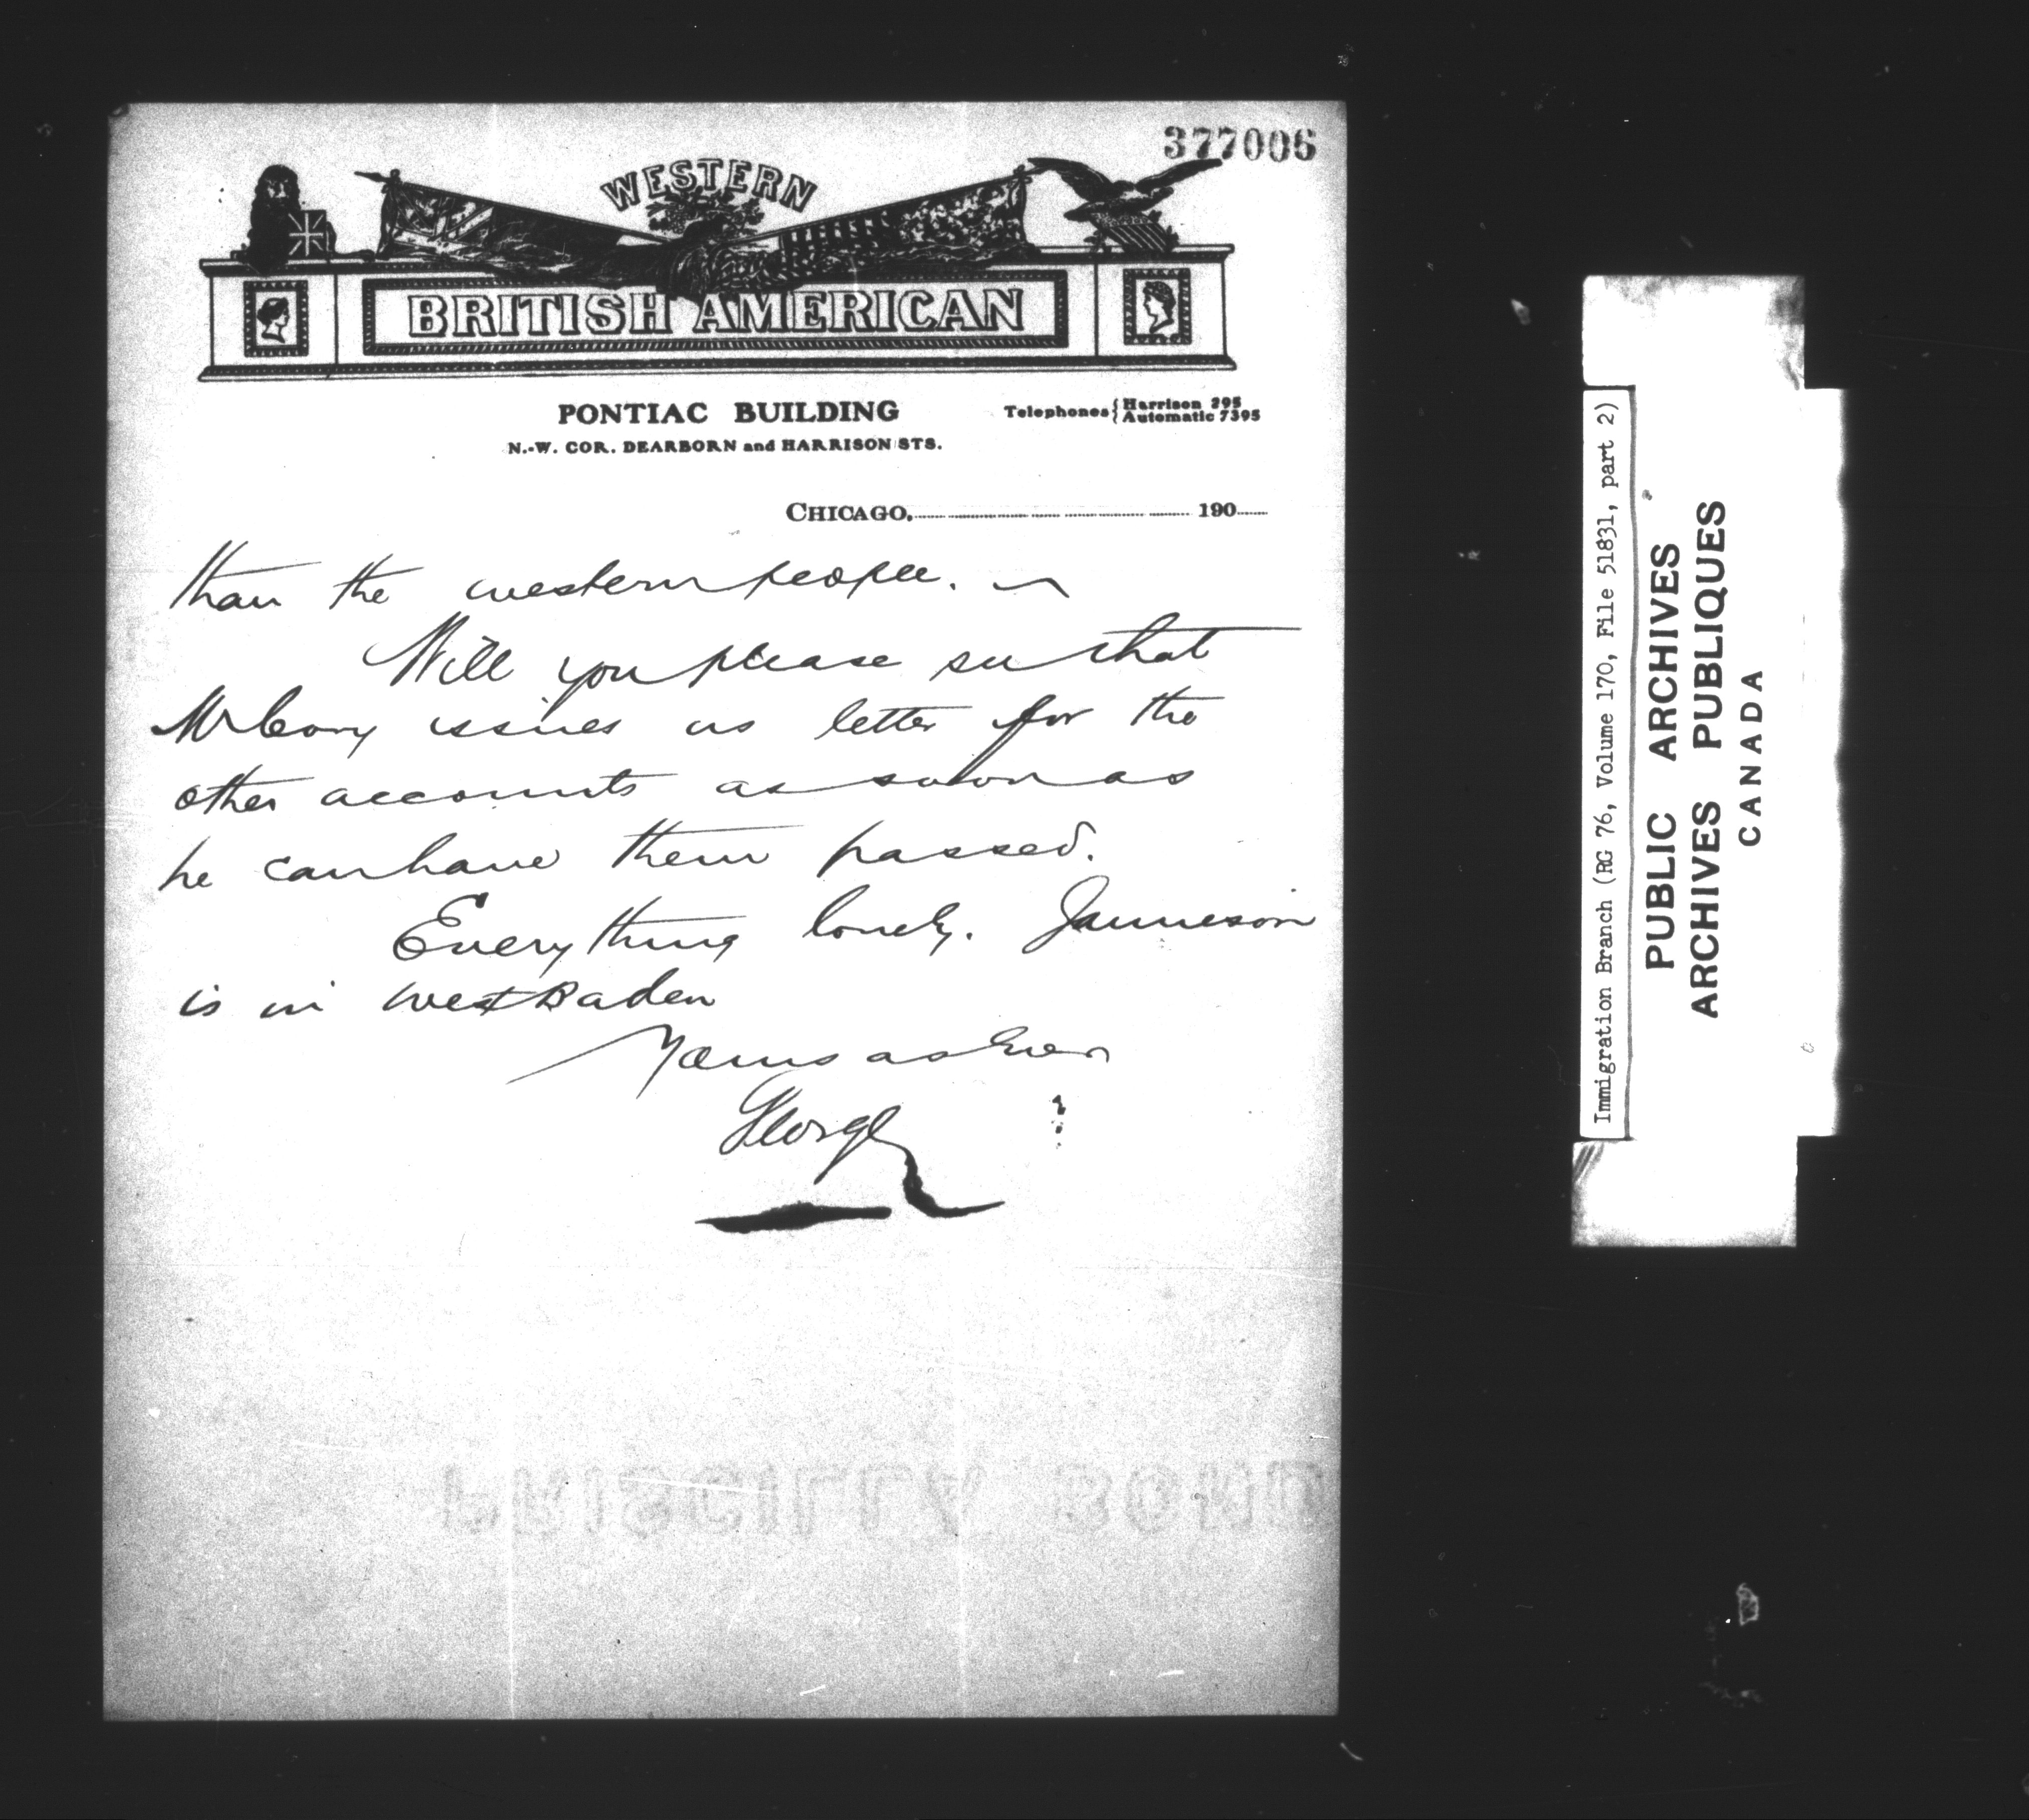 377006
WESTERN
BRITISH AMERICAN
PONTIAC BUILDING
N.-W. COR. DEARBORN and HARRISON STS.
Telephones { Harrison 295
Automatic 7395
CHICAGO, 190
than the western people.
Will you please see that
Mr Cory issues us letter for the
other accounts as soon as
he can have them passed.
Everything lovely. Jamieson
is in West Baden
Yours as Ever
George
Immigration Branch (RG 76, Volume 170, File 51831, part 2)
PUBLIC ARCHIVES
ARCHIVES PUBLIQUES
CANADA